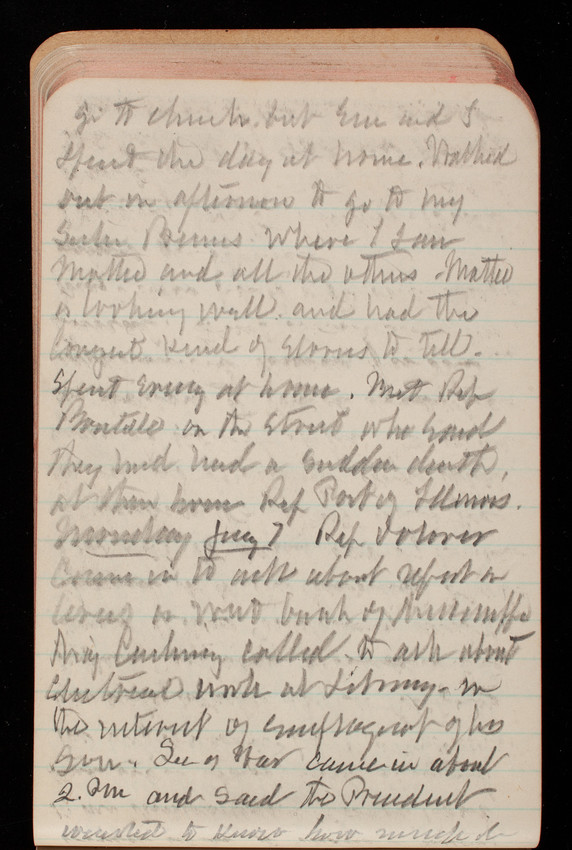 go to church. but Em and I
Spent the day at home. Walked
out in afternoon to go to my
Sister Bemis where I saw
Mattie and all the others. Mattie
is looking well. and had the
longest kind of stories to tell.
Spent Eveng at home. Met Rep
Boutelle on the Street who said
they had had a sudden death,
at their home Rep Post of Illinois.
Monday Jany 7 Rep
Came in to ask about report on
levees on West bank of Mississippi
called to ask about
Electrical work at Library - in
the interest of employment of his
Son. Sec of War came in about
2. PM and said the President
wanted to know how much it